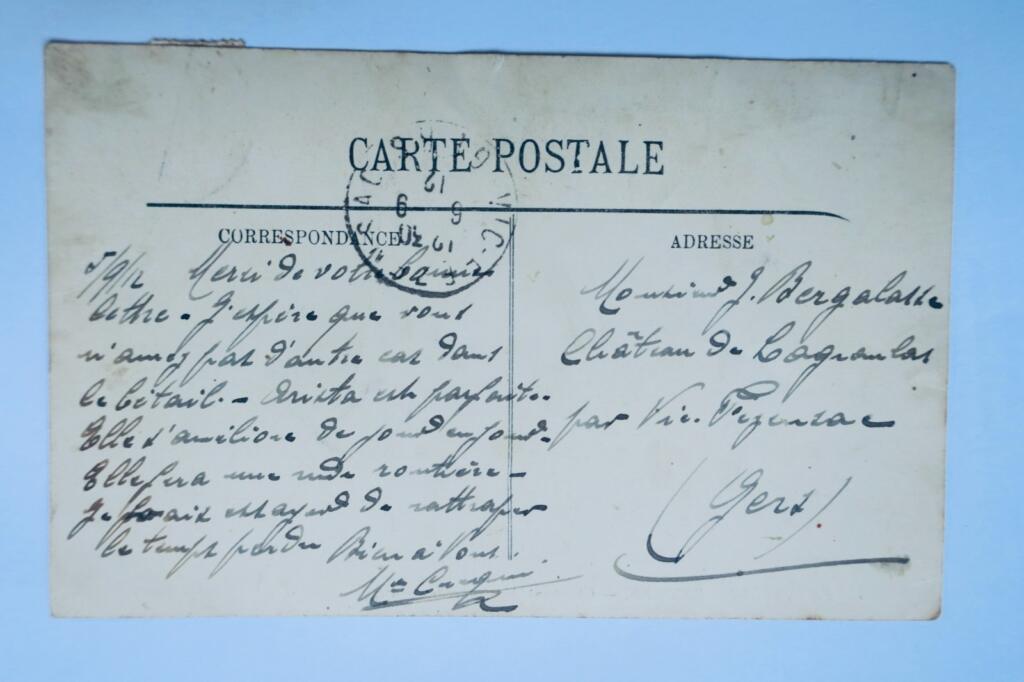 CARTE POSTALE
CORRESPONDANCE
5/9/12 Merci de votre bonne
lettre - J'espère que vous
n'avez pas d'autre cas dans
le bétail. - Arista est parfaite.
Elle s'améliore de jour en jour -
Elle sera une rude routière -
Je vais essayer de rattraper
le temps perdu Bien à vous.
ADRESSE
Monsieur J. Bergalasse
Château de Lagraulas
par Vic-Fezensac
(Gers)